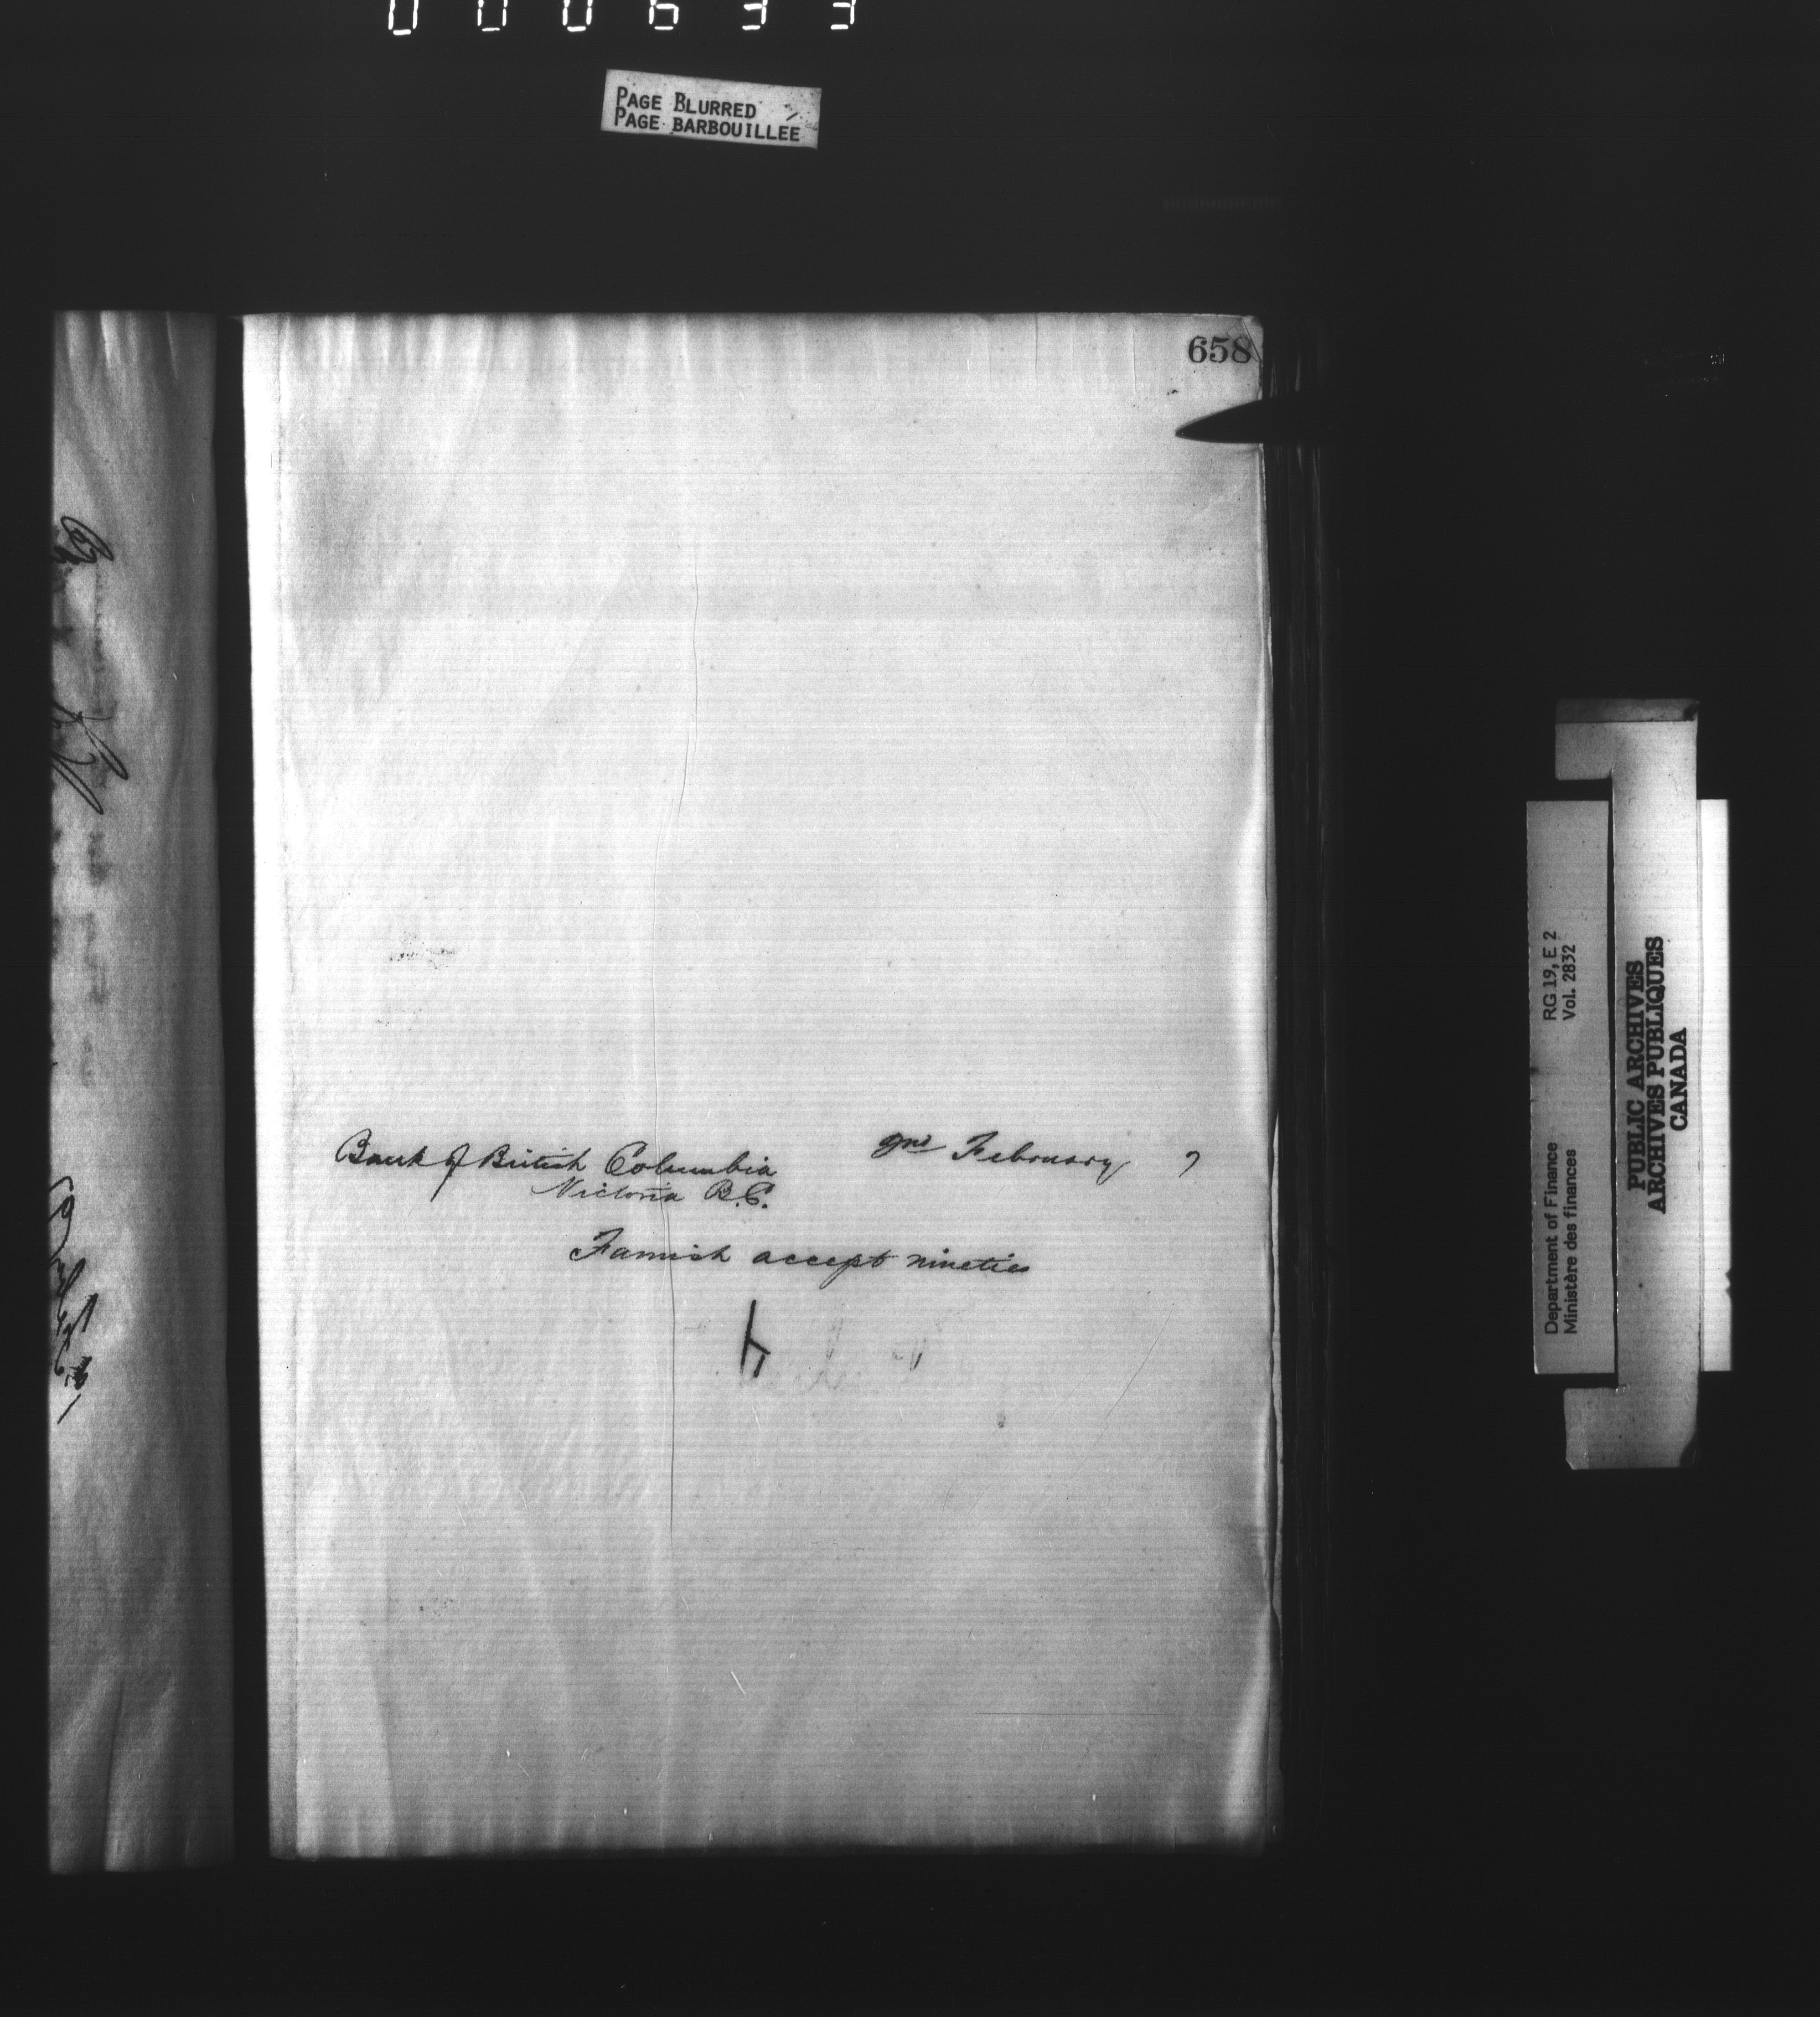 000633
PAGE BLURRED
PAGE BARBOUILLEE
658
Bank of British Columbia
February 7
Victoria B.C.
Famish accept nineties
RG 19, E 2
Vol. 2832
Department of Finance
Ministère des finances
PUBLIC ARCHIVES
ARCHIVES PUBLIQUES
CANADA